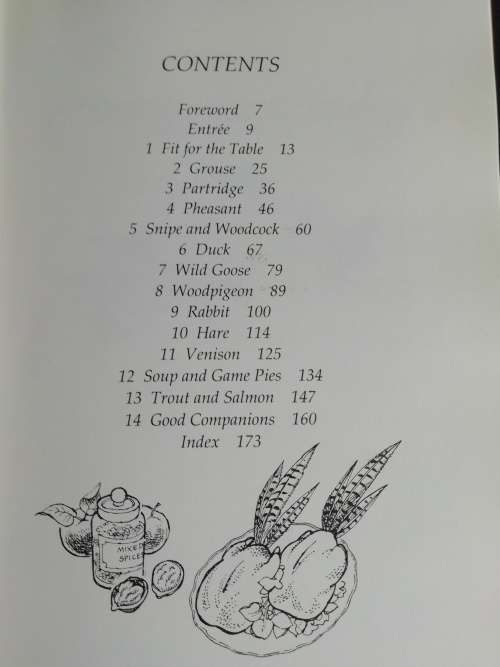 CONTENTS
Foreword 7
Entrée 9
1 Fit for the Table 13
2 Grouse 25
3 Partridge 36
4 Pheasant 46
5 Snipe and Woodcock 60
6 Duck 67
7 Wild Goose 79
8 Woodpigeon 89
9 Rabbit 100
10 Hare 114
11 Venison 125
12 Soup and Game Pies 134
13 Trout and Salmon 147
14 Good Companions 160
Index 173
MIXED
SPICE